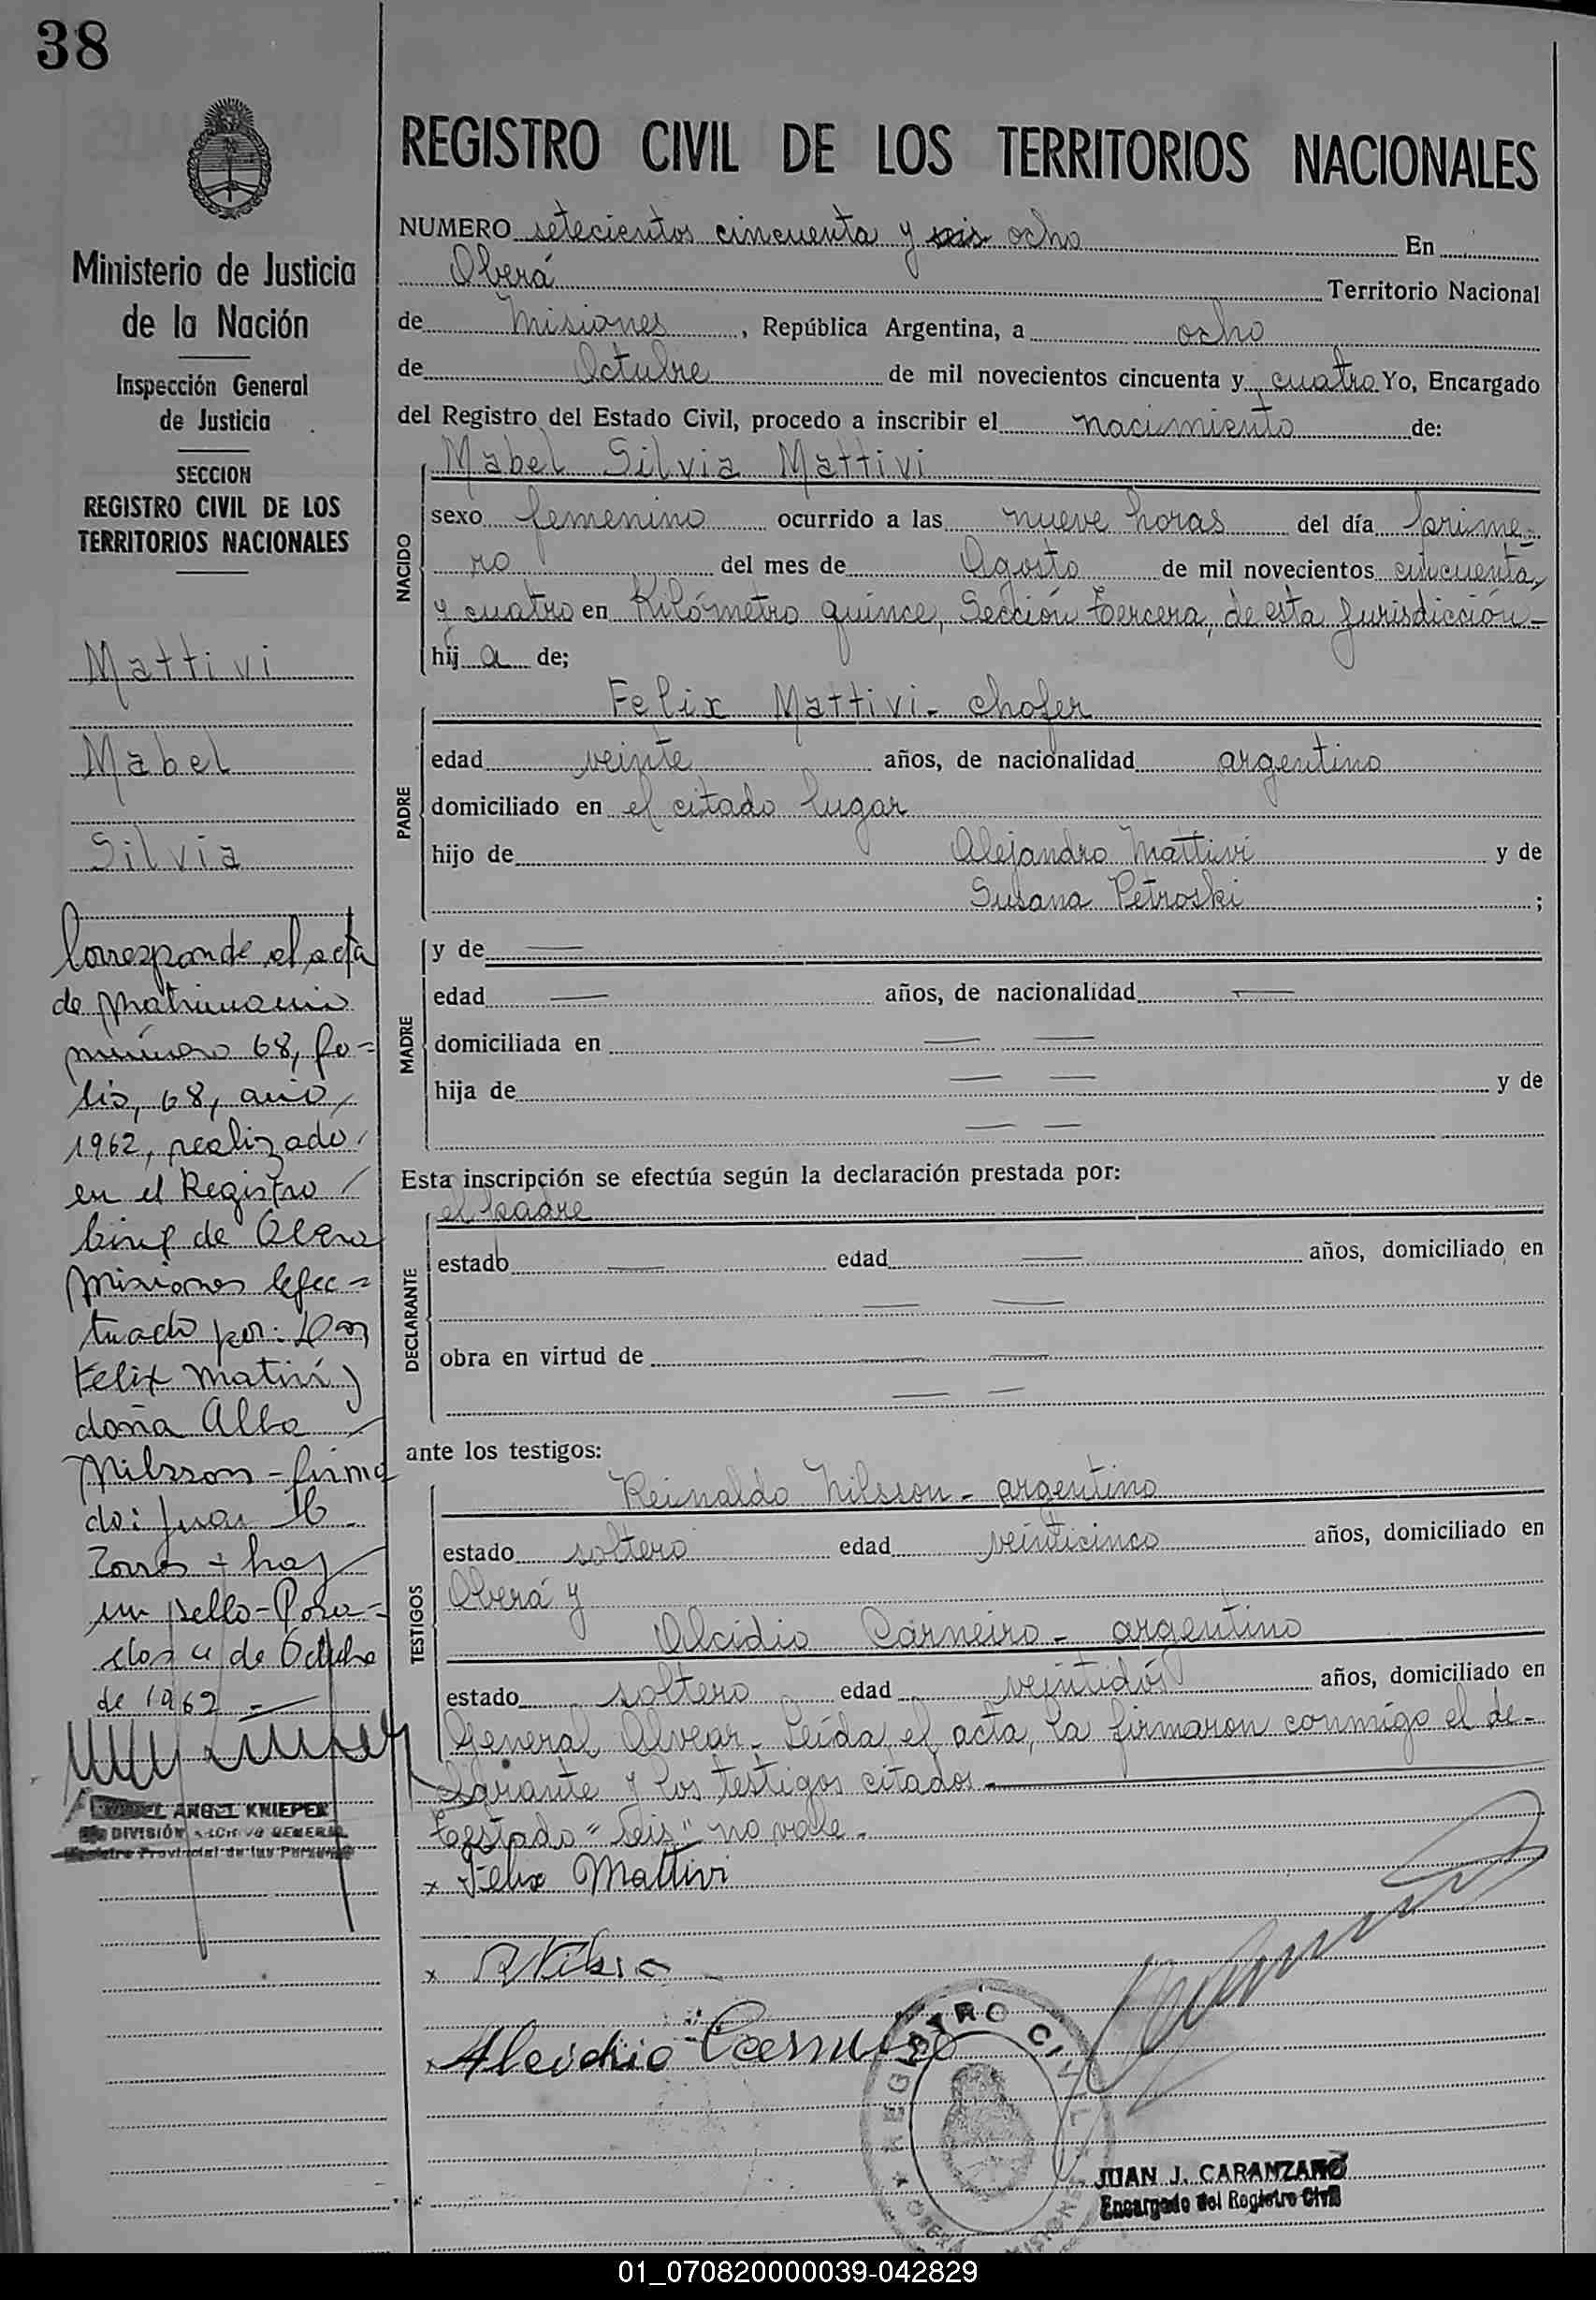 38
Ministerio de Justicia
de la Nación
Inspección General
de Justicia
SECCION
REGISTRO CIVIL DE LOS
TERRITORIOS NACIONALES
Mattivi
Mabel
Silvia
Corresponde el acta
de Matrimonio
número 68, fo=
lio, 68, año,
1962, realizado
en el Registro
Civil de Obera
Misiones efec=
tuado por: Don
Felix Mativi y
doña Alba
Nilsson - firma
do: Juan
Torres + hay
un sello - Posa=
das 4 de Octubre
de 1962 -
ANGEL KNIEPER
DIVISIÓN ARCHIVO GENERAL
Registro Provincial de las Personas
REGISTRO CIVIL DE LOS TERRITORIOS NACIONALES
NUMERO setecientos cincuenta y seis ocho En
Oberá Territorio Nacional
de Misiones, República Argentina, a ocho
de Octubre de mil novecientos cincuenta y cuatro Yo, Encargado
del Registro del Estado Civil, procedo a inscribir el nacimiento de:
Mabel Silvia Mattivi
NACIDO
sexo femenino ocurrido a las nueve horas del día prime-
ro del mes de Agosto de mil novecientos cincuenta
y cuatro en Kilómetro quince, Sección tercera, de esta jurisdicción-
hij a de;
Felix Mattivi - chofer
PADRE
edad veinte años, de nacionalidad argentino
domiciliado en el citado lugar
hijo de Alejandro Mattivi y de
Susana Petroski ;
MADRE
y de —
edad — años, de nacionalidad —
domiciliada en — —
hija de — — y de
— —
Esta inscripción se efectúa según la declaración prestada por:
el padre
DECLARANTE
estado — edad — años, domiciliado en
— —
obra en virtud de — —
— —
ante los testigos:
Reinaldo Nilsson - argentino
TESTIGOS
estado soltero edad veinticinco años, domiciliado en
Oberá y
Alcidio Carneiro - argentino
estado soltero edad veintidós años, domiciliado en
General Alvear - Leída el acta, la firmaron conmigo el de-
clarante y los testigos citados -
Testado "seis" no vale -
x Felix Mattivi
x
x Alcidio Carneiro
REGISTRO CIVIL
OBERÁ MISIONES
JUAN J. CARANZANO
Encargado del Registro Civil
01_070820000039-042829